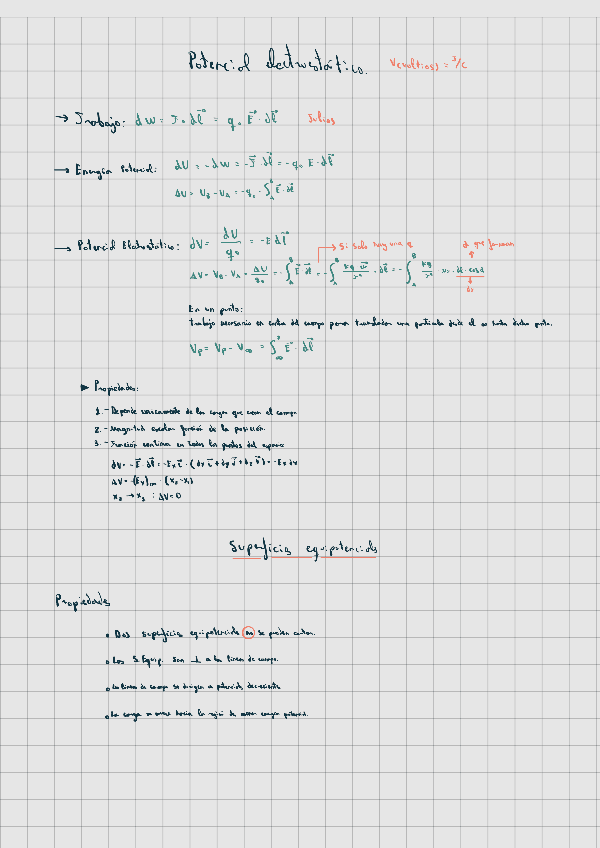 Potencial electrostático. V(voltios) = J/C
→ Trabajo: dW = F · dl = q₀ E · dl Julios
→ Energía Potencial: dU = -dW = -F · dl = -q₀ E · dl
ΔU = U_B - U_A = -q₀ ∫_A^B E · dl
→ Potencial Electrostático: dV = dU/q₀ = -E dl
→ Si solo hay una q
α que forman
ΔV = V_B - V_A = ΔU/q₀ = -∫_A^B E · dl = -∫_A^B kq u/r² · dl = -∫_A^B kq/r² · dl · cos α
dr
En un punto:
Trabajo necesario en contra del campo para trasladar una partícula desde el ∞ hasta dicho punto.
V_P = V_P - V_∞ = ∫_∞^P E · dl
► Propiedades:
1. - Depende únicamente de las cargas que crean el campo
2. - Magnitud escalar función de la posición.
3. - Función continua en todos los puntos del espacio
dV = -E · dl = -E_x i · (dx i + dy j + dz k) = -E_x dx
ΔV = -(E_x)_m · (x₂ - x₁)
x₂ → x₁ : ΔV = 0
Superficies equipotenciales
Propiedades
• Dos superficies equipotenciales no se pueden cortar.
• Las S. Equip. son ⊥ a las líneas de campo.
• Las líneas de campo se dirigen a potenciales decrecientes
• La carga se mueve hacia la región de menor energía potencial.